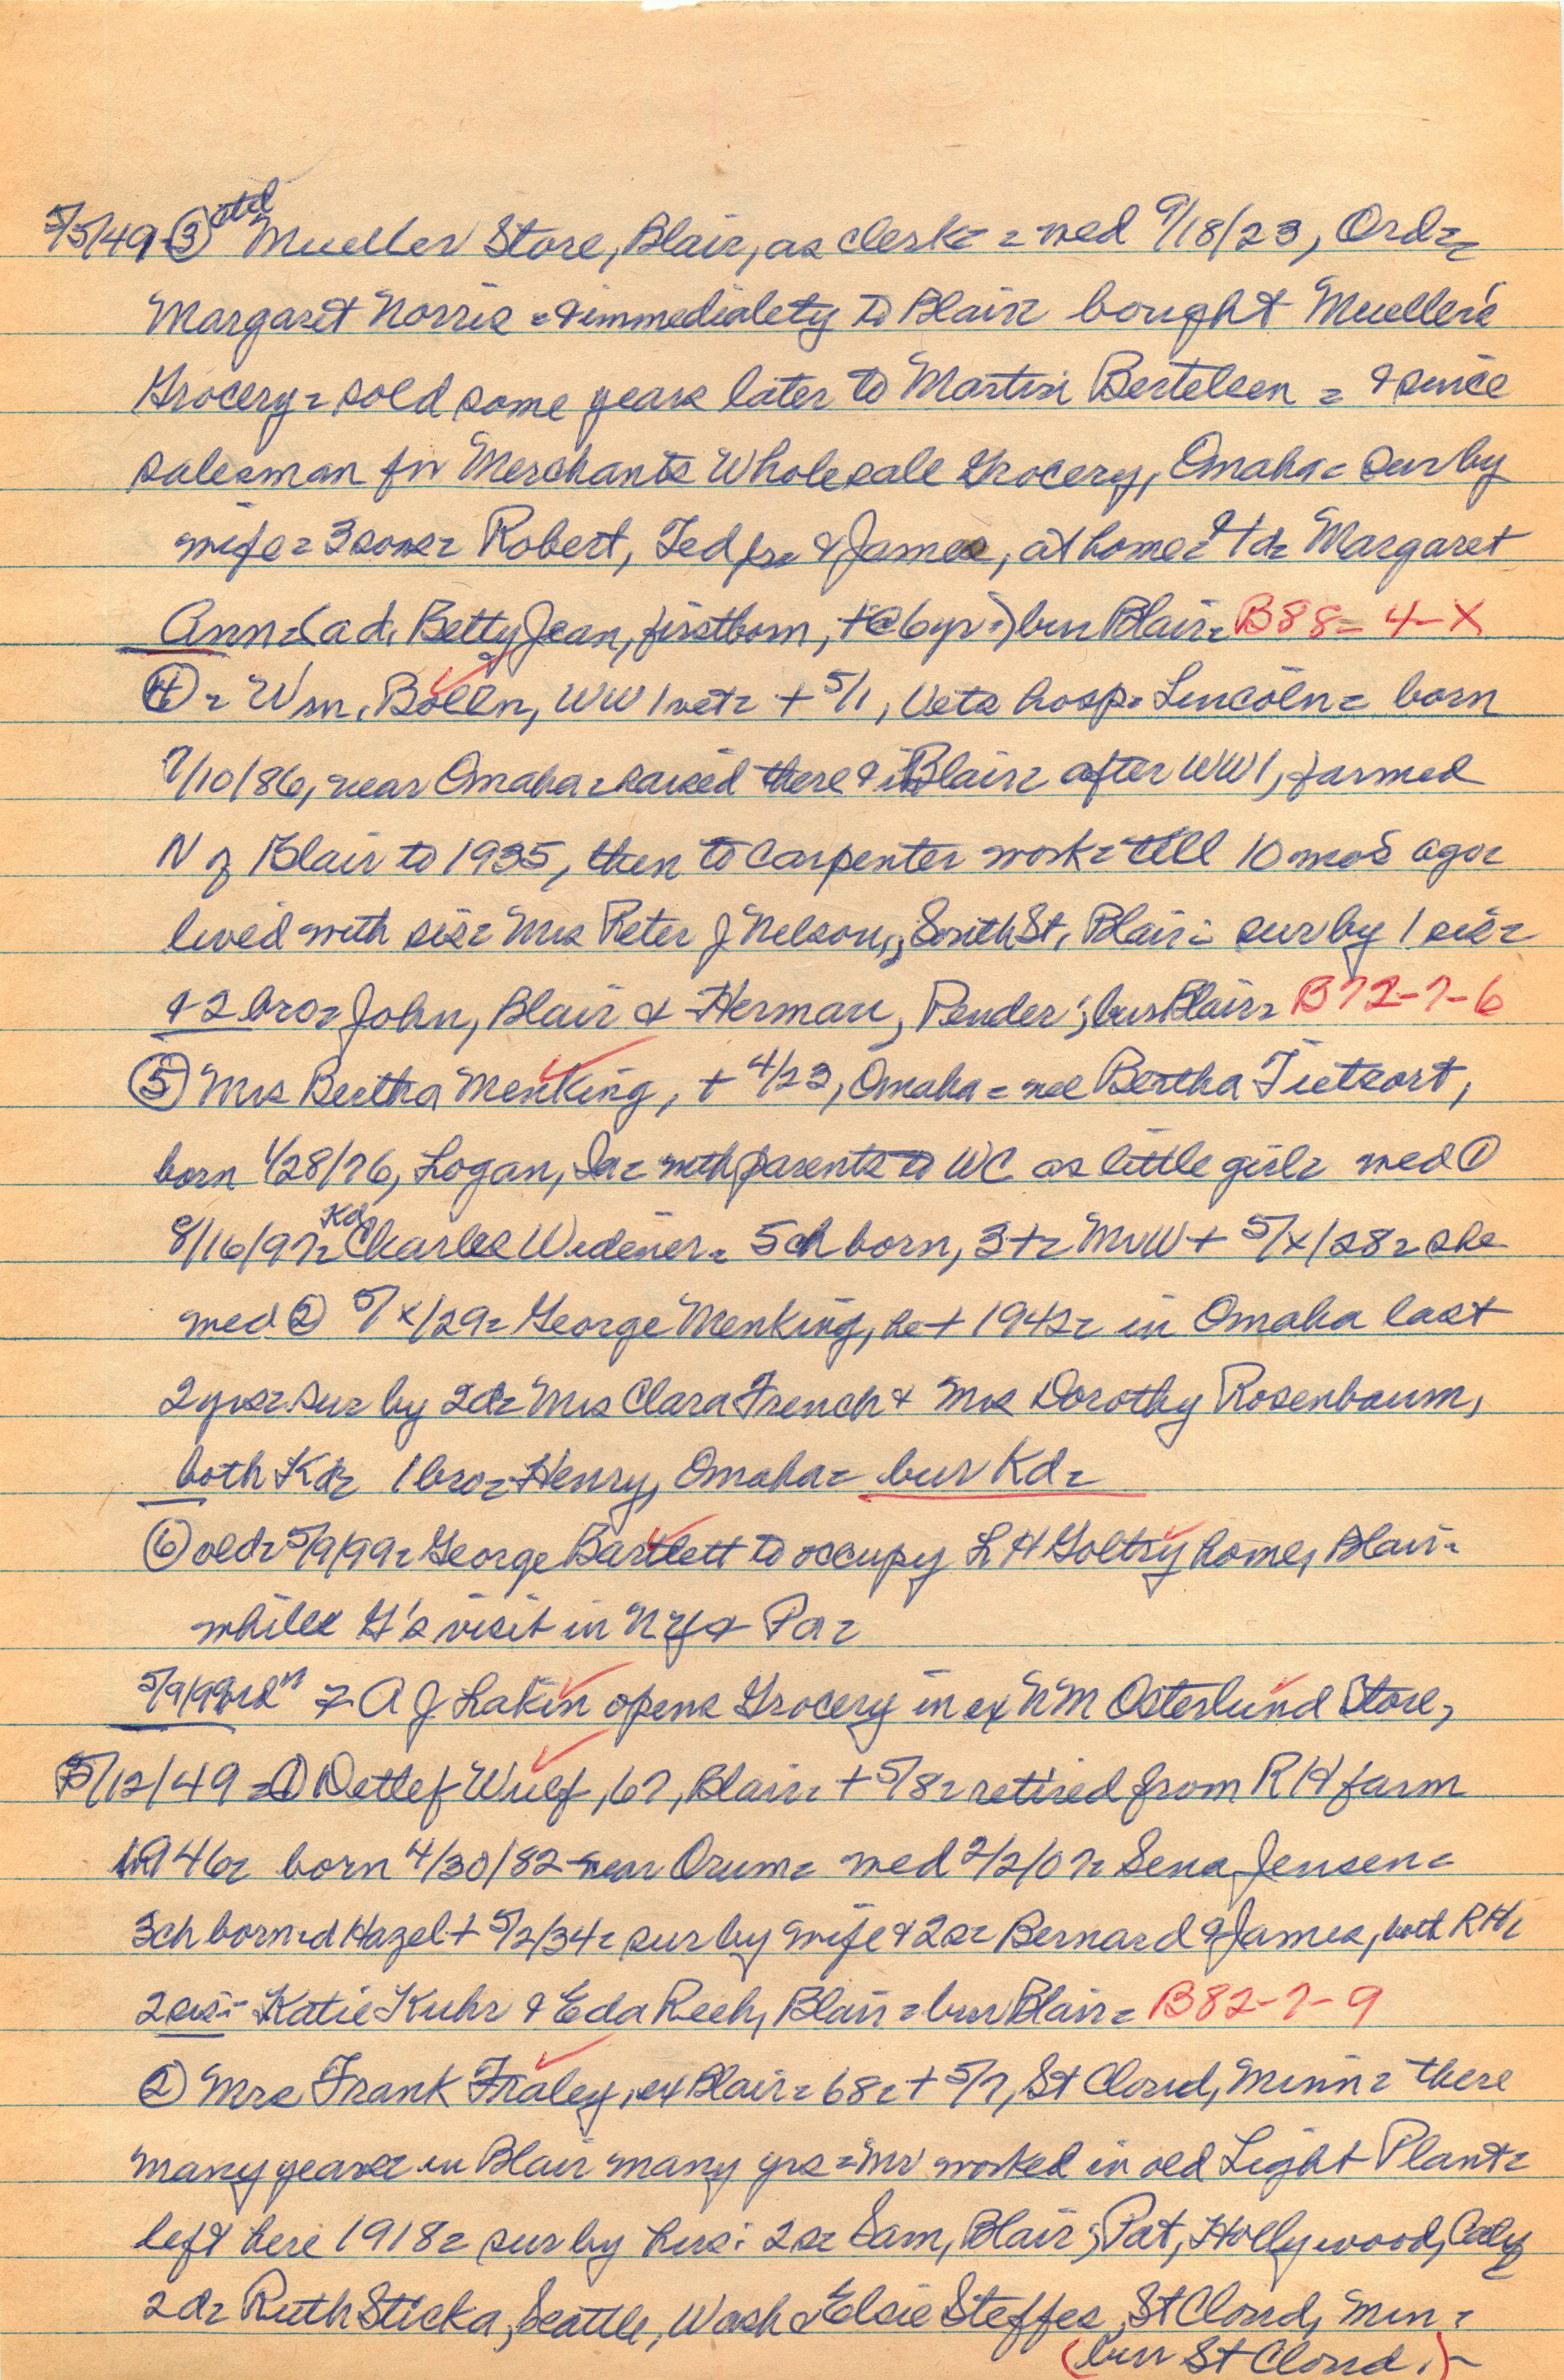 5/5/49 ③ ctd Mueller Store, Blair, as clerk = med 9/18/23, Ord =
Margaret Norris = & immediately to Blair = bought Mueller's
Grocery = sold some years later to Martin Bertelsen = & since
salesman for Merchants Wholesale Grocery, Omaha = sur by
wife = 3 sons = Robert, Ted jr = & James, at home = & 1 d = Margaret
Ann = (a d. Betty Jean, firstborn, + @ 6 yr =) bur Blair = B88 = 4-X
④ = Wm. Bolln, WW 1 vet = + 5/1, Vets hosp = Lincoln = born
7/10/86, near Omaha = raised there & in Blair = after WW 1, farmed
N of Blair to 1935, then to carpenter work = till 10 mos ago =
lived with sis = Mrs Peter J Nelson, South St, Blair = sur by 1 sis =
& 2 bro = John, Blair & Herman, Pender; bur Blair = B72-7-6
⑤ Mrs Bertha Menking, + 4/23, Omaha = nee Bertha Tietsort,
born 1/28/76, Logan, Ia = with parents to WC as little girl = med ①
8/16/97 = Kd Charles Widener = 5 ch born, 3 + = Mr W + 5/x/28 = she
med ② 5/x/29 = George Menking, he + 1942 = in Omaha last
2 yrs = sur by 2 d = Mrs Clara French & Mrs Dorothy Rosenbaum,
both Kd = 1 bro = Henry, Omaha = bur Kd =
⑥ old = 5/9/99 = George Bartlett to occupy L H Goltry home, Blair =
while G's visit in NY & Pa =
5/9/99 = A J Lakin opens Grocery in ex N M Osterlund Store,
5/12/49 = ① Detlef Wulf, 67, Blair = + 5/8 = retired from RH farm
in 1946 = born 4/30/82 near Orum = med 2/2/07 = Sena Jensen =
3 ch born = d Hazel + 5/2/34 = sur by wife & 2 s = Bernard & James, both RH =
2 sis = Katie Kuhr & Eda Reeh, Blair = bur Blair = B82-7-9
② Mrs Frank Fraley, ex Blair = 68 = + 5/7, St Cloud, Minn = there
many years = in Blair many yrs = Mr worked in old Light Plant =
left here 1918 = sur by hus: 2 s = Sam, Blair; Pat, Hollywood, Calif
2 d = Ruth Sticka, Seattle, Wash & Elsie Steffes, St Cloud, Minn =
(bur St Cloud.) -